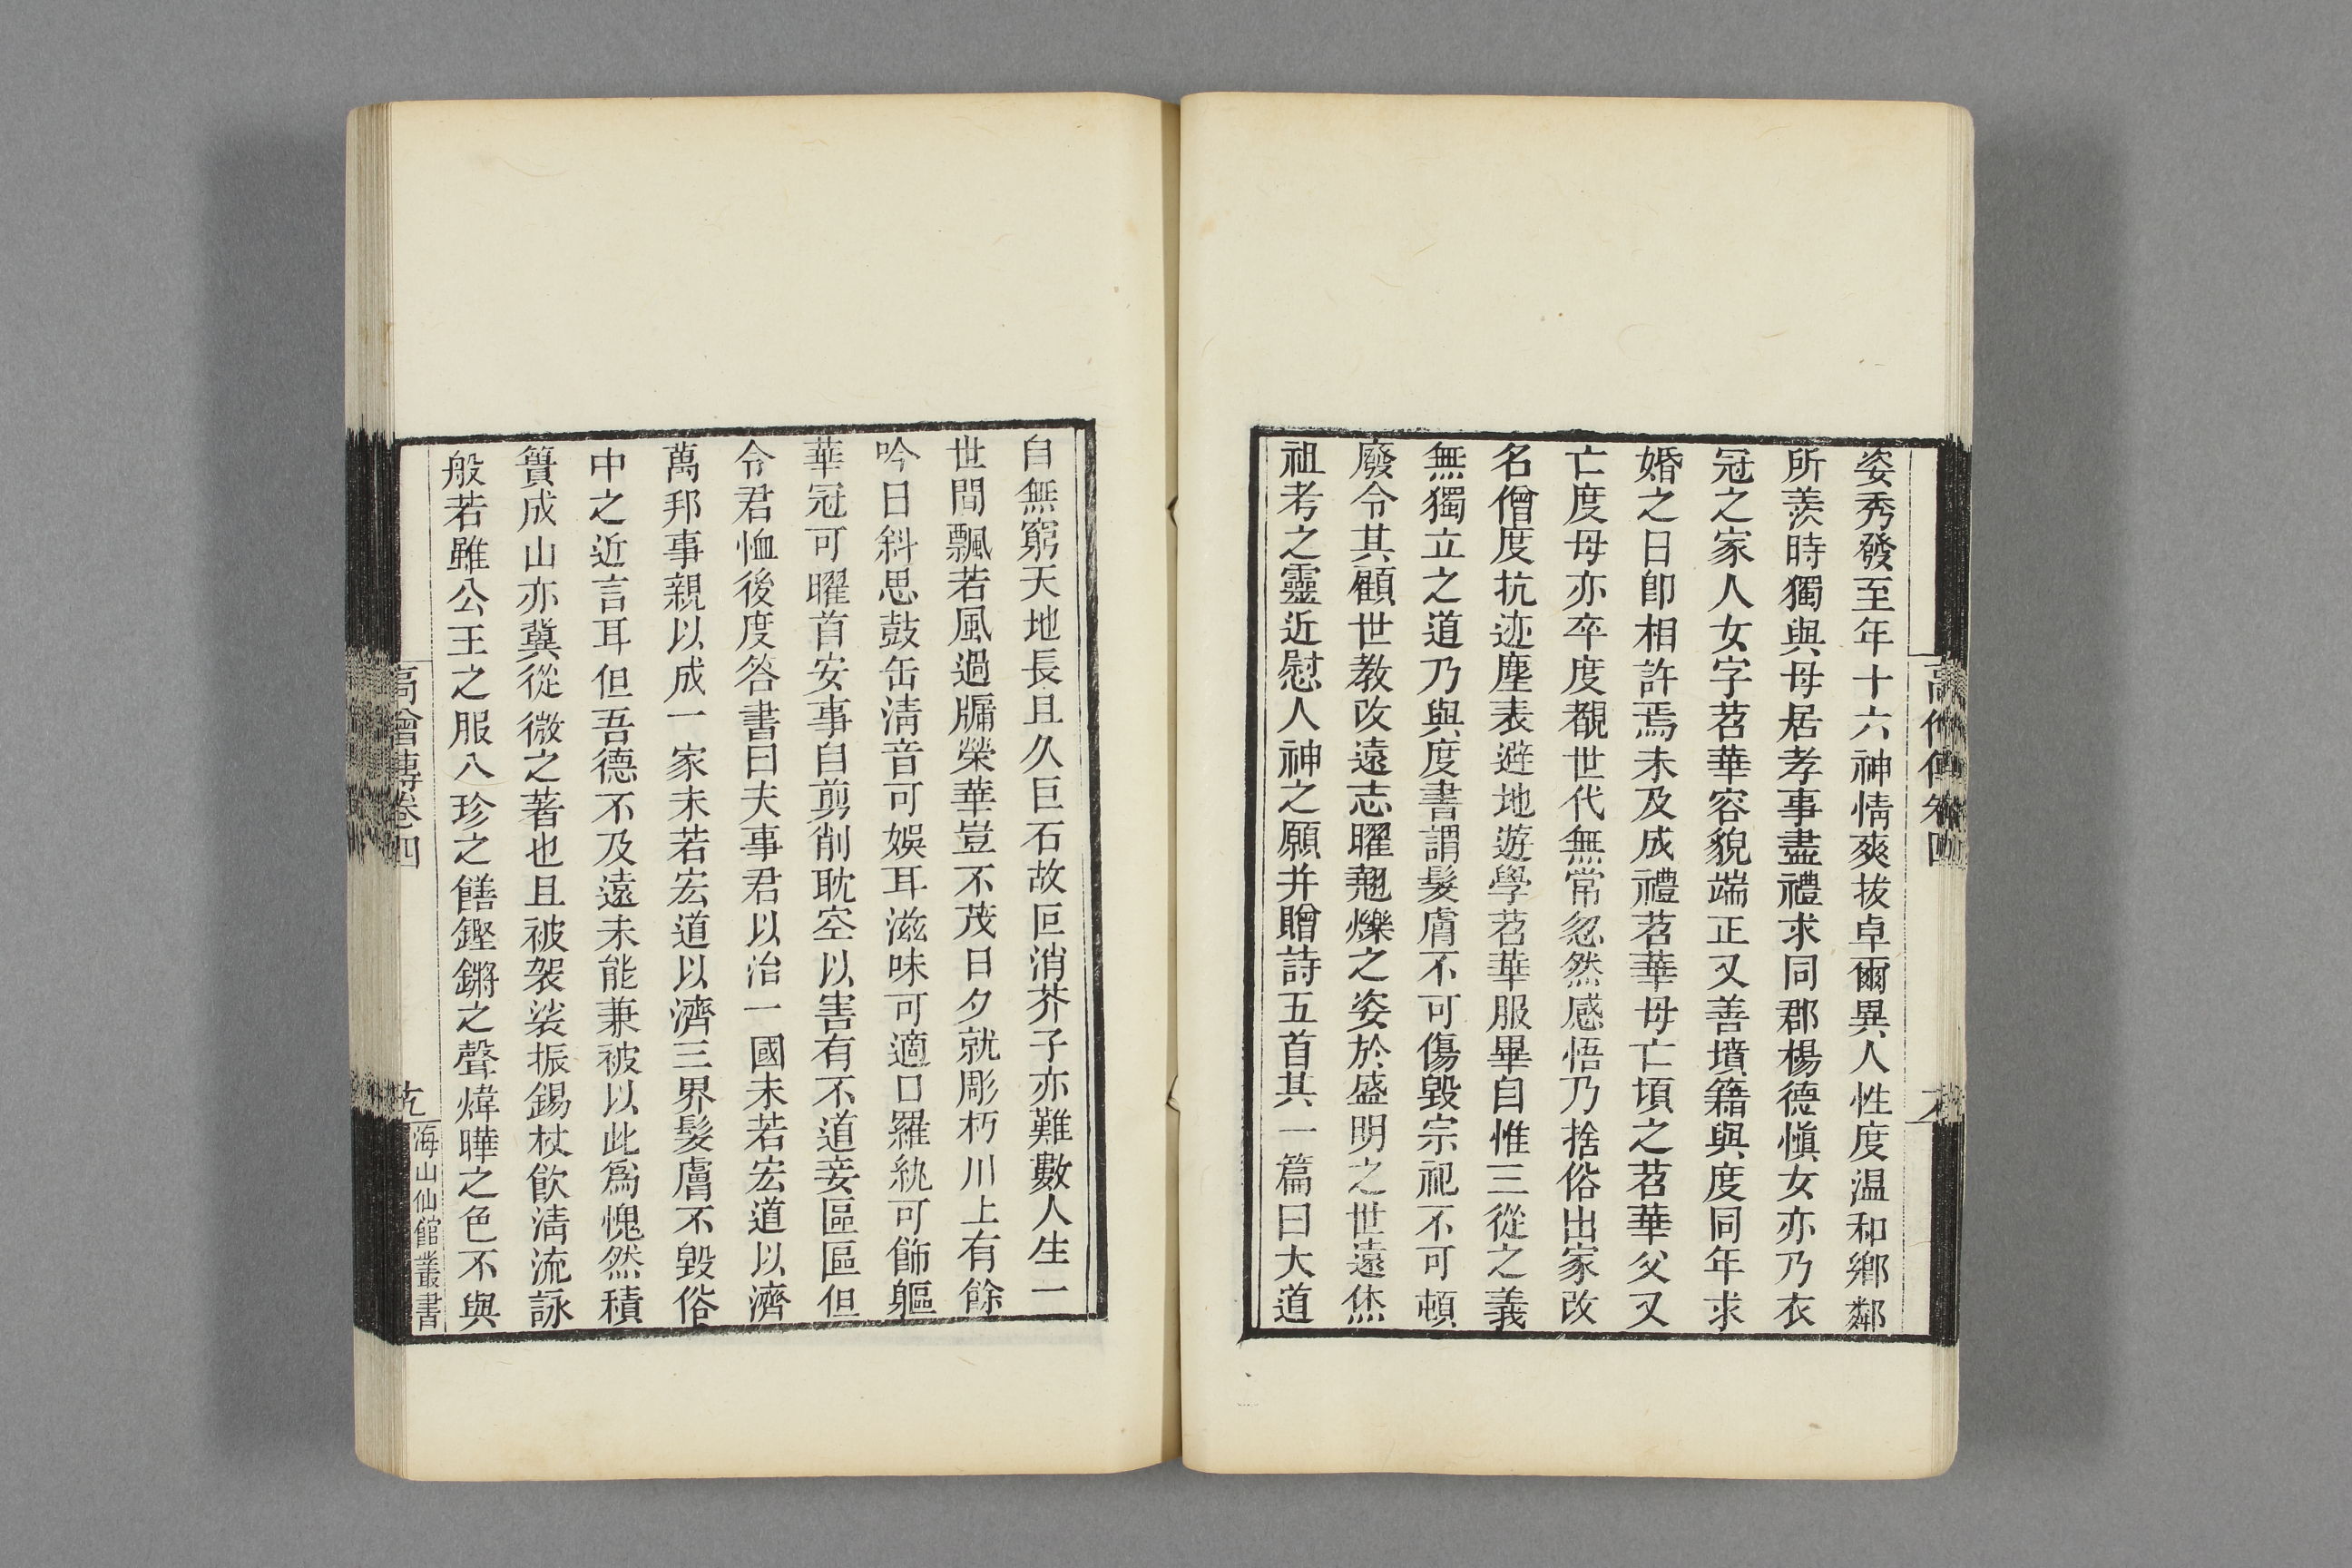 姿秀發至年十六神情爽拔卓爾異人性度温和鄉鄰
所羨時獨與母居孝事盡禮求同郡楊德愼女亦乃衣
冠之家人女字苕華容貌端正又善墳籍與度同年求
婚之日卽相許焉未及成禮苕華母亡頃之苕華父又
亡度母亦卒度覩世代無常忽然感悟乃捨俗出家改
名僧度抗迹塵表避地遊學苕華服畢自惟三從之義
無獨立之道乃與度書謂髮膚不可傷毀宗祀不可頓
廢令其顧世教改遠志曜翹爍之姿於盛明之世遠休
祖考之靈近慰人神之願并贈詩五首其一篇曰大道
自無窮天地長且久巨石故叵消芥子亦難數人生一
世間飄若風過牖榮華豈不茂日夕就彫朽川上有餘
吟日斜思鼓缶清音可娛耳滋味可適口羅紈可飾軀
華冠可曜首安事自剪削耽空以害有不道妾區區但
令君恤後度答書曰夫事君以治一國未若宏道以濟
萬邦事親以成一家未若宏道以濟三界髮膚不毀俗
中之近言耳但吾德不及遠未能兼被以此爲愧然積
簣成山亦冀從微之著也且被袈裟振錫杖飲清流詠
般若雖公王之服八珍之饍鏗鏘之聲煒曄之色不與
高僧傳卷四
海山仙館叢書